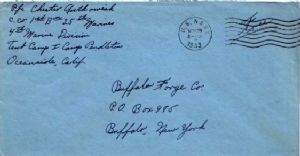 Pfc Chester Gutkowski
C. Co. 1st Bn 25th Marines
4th Marine Division
Tent Camp 1 Camp Pendleton
Oceanside, Calif.
U.S. NAVY
1943
Free
Buffalo Forge Co.
P.O. Box 985
Buffalo, New York